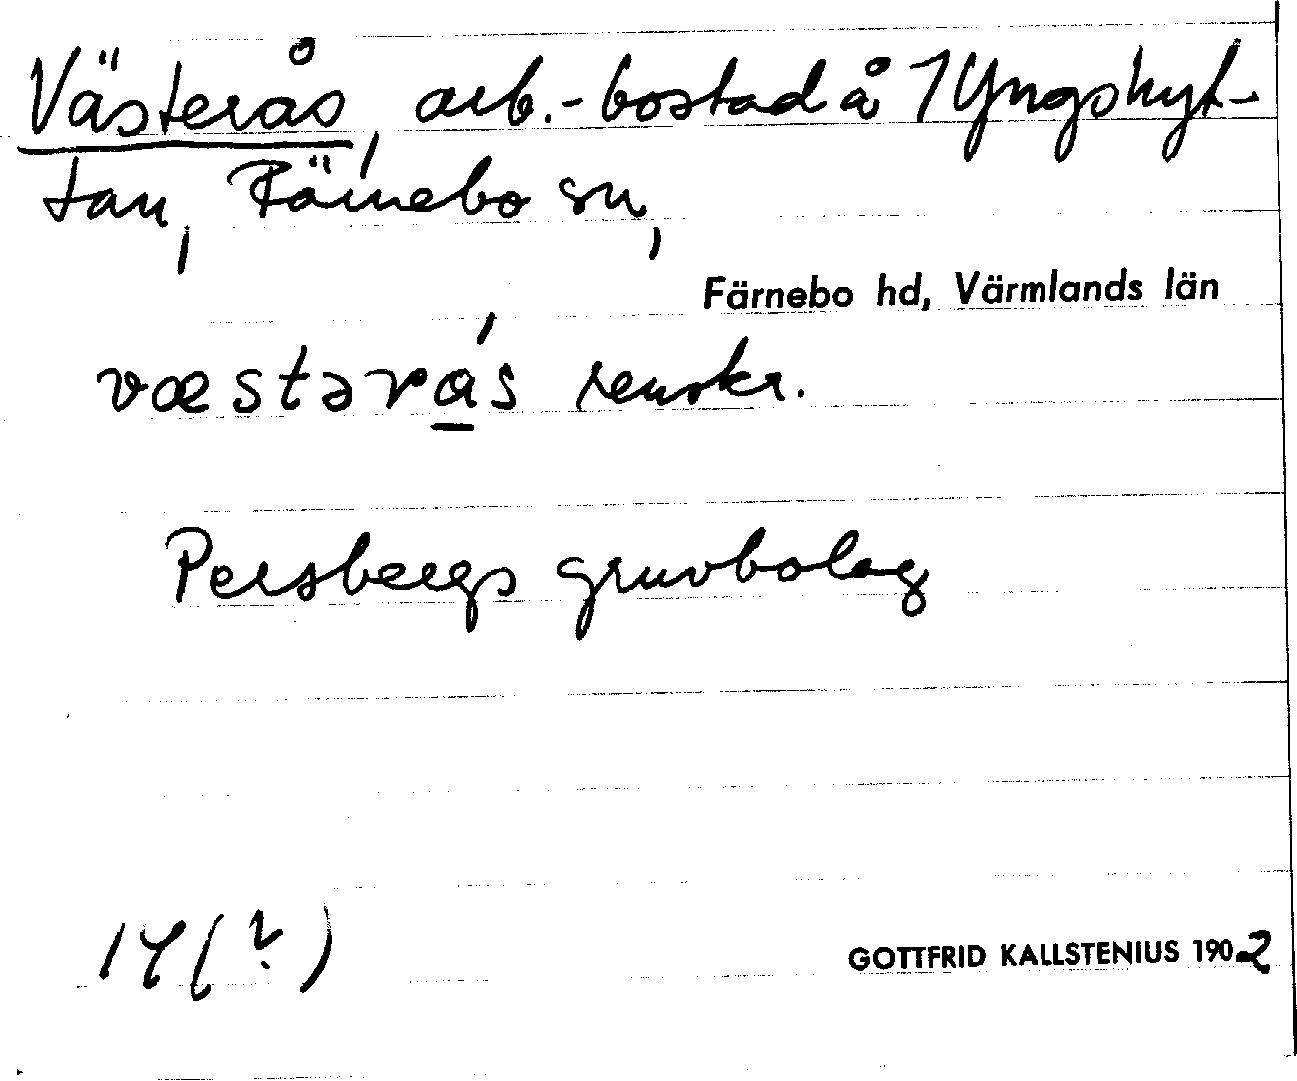 Västerås, arb.-bostad å 1 Yngshyt-
tan, Färnebo sn,
Färnebo hd, Värmlands län
væstəra̲´s renskr.
Persbergs gruvbolag
14(?)
GOTTFRID KALLSTENIUS 1902